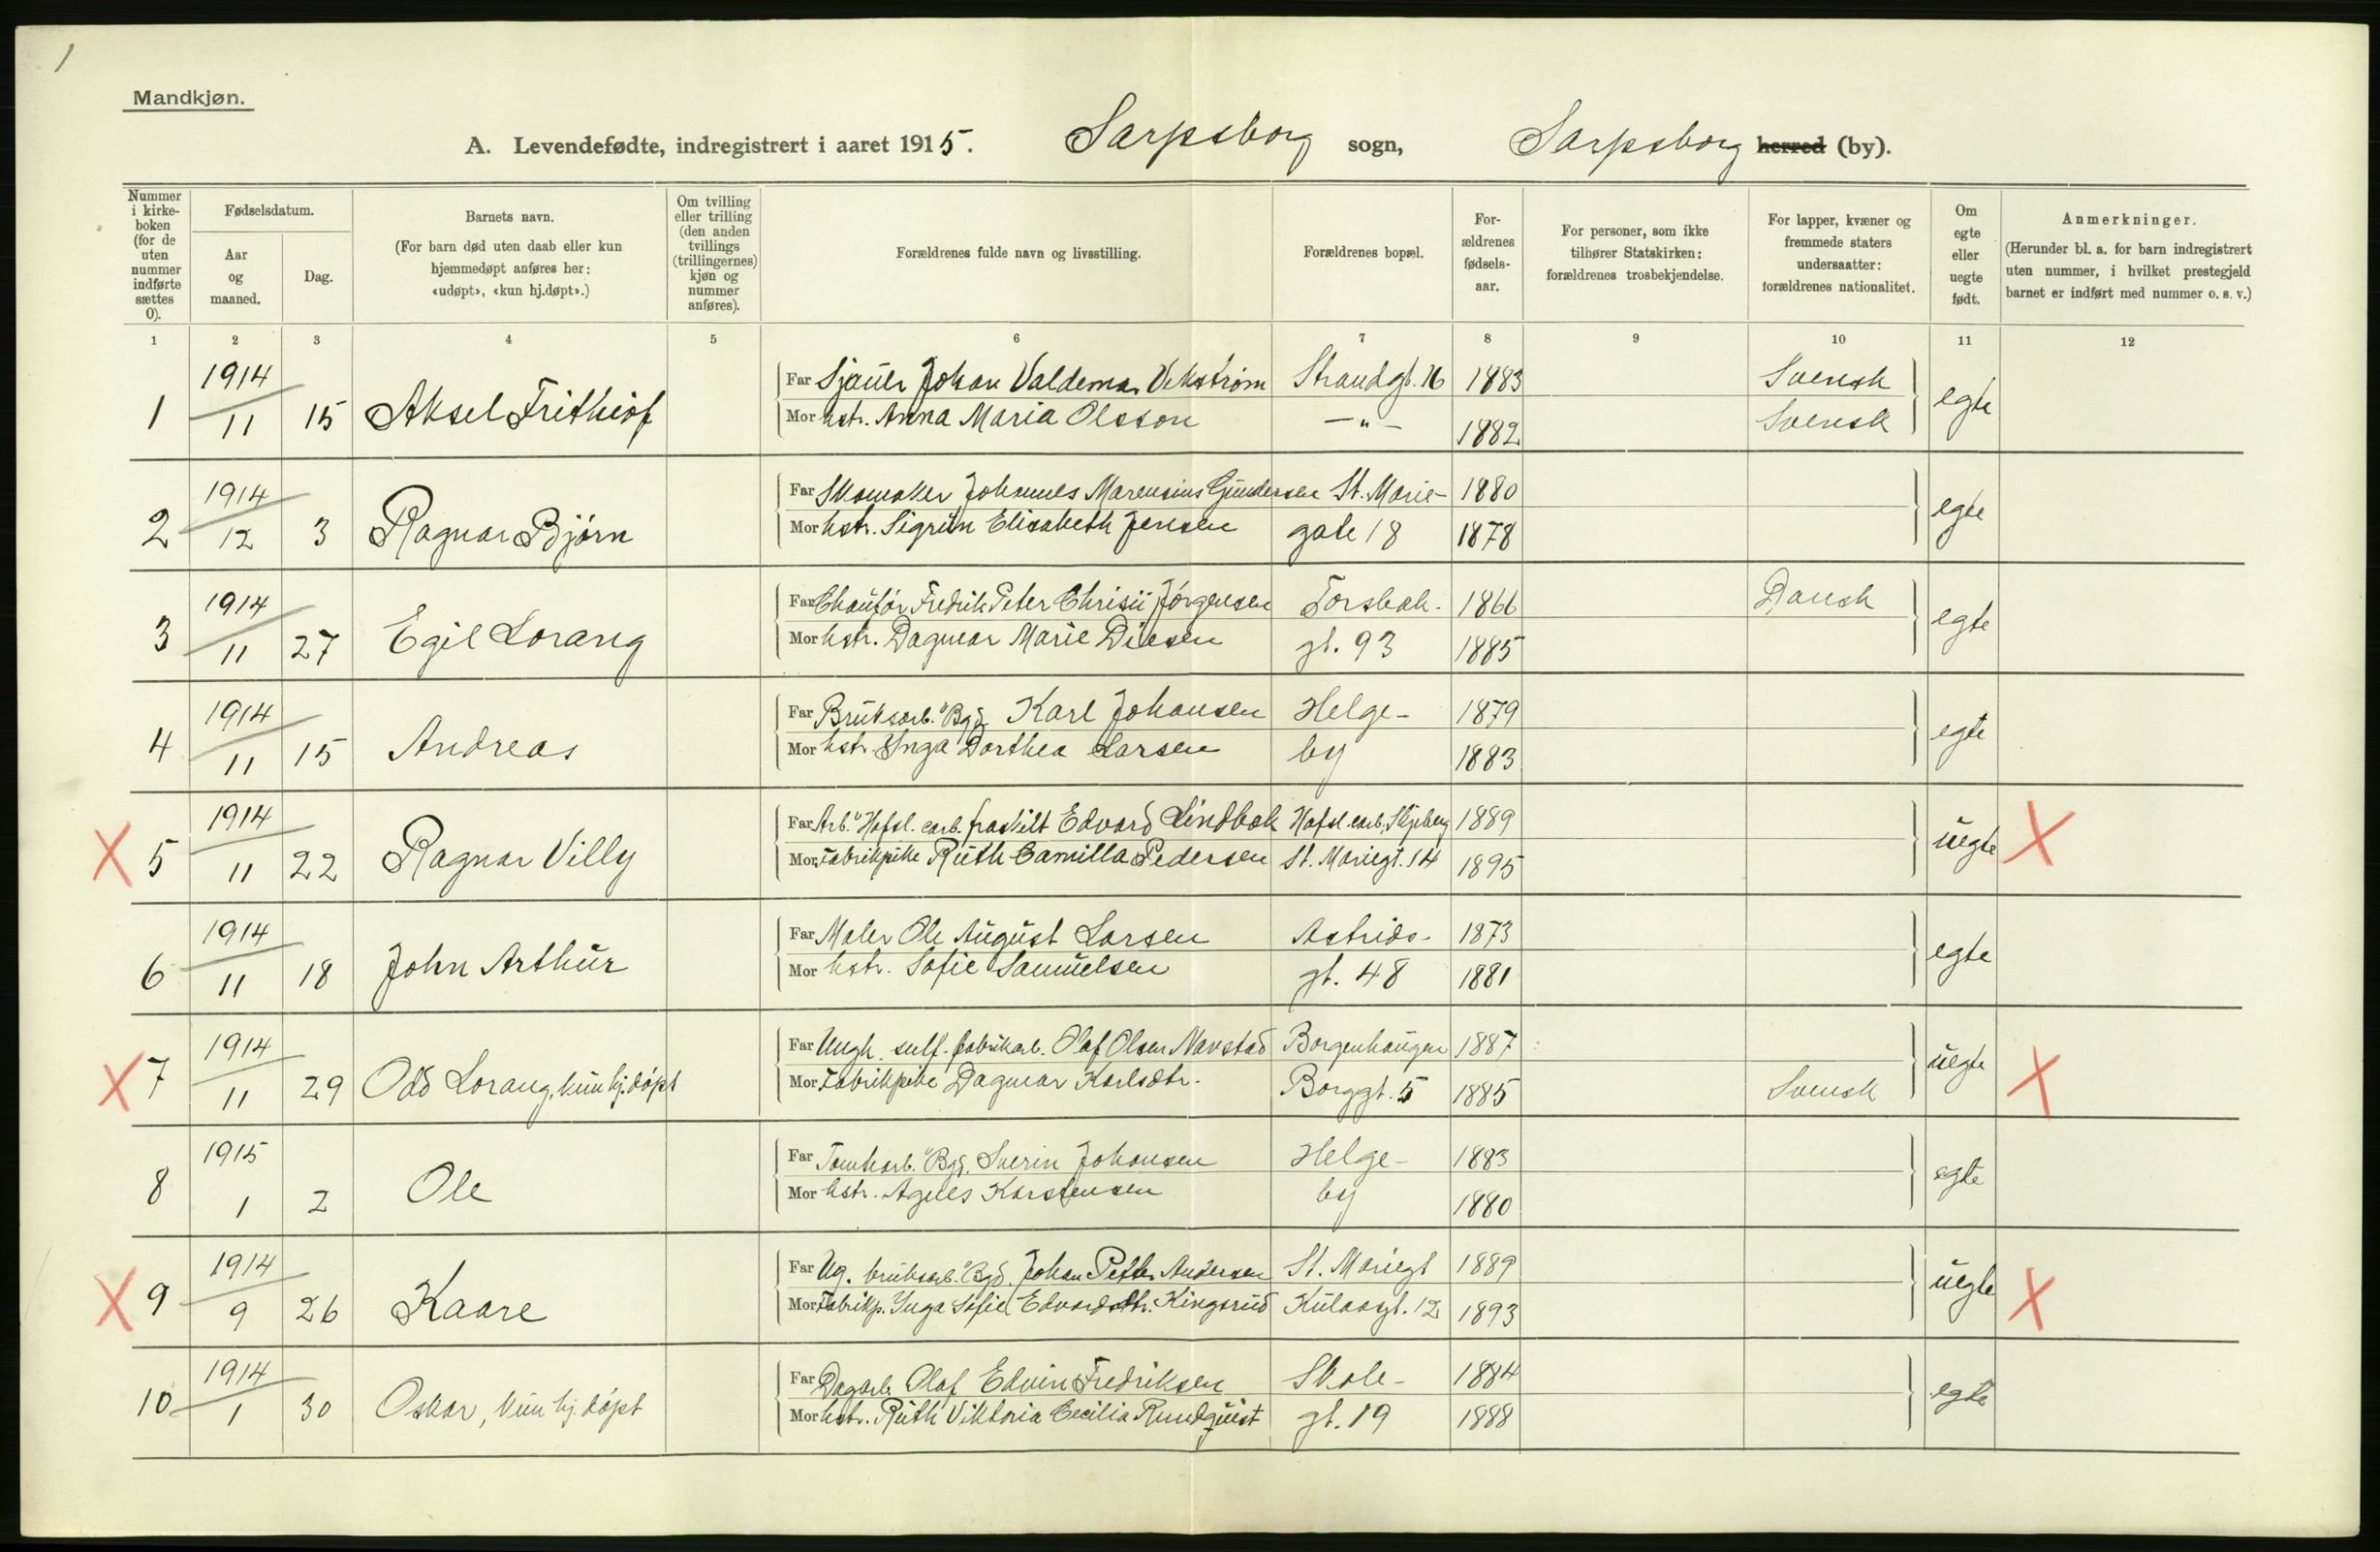 1
Mandkjøn.
A. Levendefødte, indregistrert i aaret 1915. Sarpsborg sogn, Sarpsborg herred (by).
Nummer i kirke-boken (for de uten nummer indførte sættes 0).
Fødselsdatum.
Aar og maaned.
Dag.
Barnets navn.
(For barn død uten daab eller kun hjemmedøpt anføres her: «udøpt», «kun hj.døpt».)
Om tvilling eller trilling (den anden tvillings (trillingernes) kjøn og nummer anføres).
Forældrenes fulde navn og livsstilling.
Forældrenes bopæl.
For-ældrenes fødsels-aar.
For personer, som ikke tilhører Statskirken: forældrenes trosbekjendelse.
For lapper, kvæner og fremmede staters undersaatter: forældrenes nationalitet.
Om egte eller uegte født.
Anmerkninger.
(Herunder bl. a. for barn indregistrert uten nummer, i hvilket prestegjeld barnet er indført med nummer o. s. v.)
1 2 3 4 5 6 7 8 9 10 11 12
1914 Far Sjauer Johan Valdemar Vikstrøm Strandgt. 16 1883 Svensk
1 11 15 Aksel Frithiof Mor hstr. Anna Maria Olsson —"— 1882 Svensk egte
1914 Far Skomaker Johannes Marensius Gundersen St. Marie- 1880
2 12 3 Ragnar Bjørn Mor hstr. Sigrun Elisabeth Jensen gate 18 1878 egte
1914 Far Chauffør Fredrik Peter Jørgensen Torsbak- 1866 Dansk
3 11 27 Egil Lorang Mor hstr. Dagmar Marie Diesen gt. 93 1885 egte
1914 Far Bruksarb. "Bgd. Karl Johansen Helge- 1879
4 11 15 Andreas Mor hstr. Inga Dorthea Larsen by 1883 egte
1914 Far Arb. "Hafsl. carb. fraskilt Edvard Lindbak Hafsl. carb. Skjeberg 1889
X 5 11 22 Ragnar Villy Mor Fabrikpike Ruth Camilla Pedersen St. Mariegt. 14 1895 uegte X
1914 Far Maler Ole August Larsen Astrids- 1873
6 11 18 John Arthur Mor hstr. Sofie Samuelsen gt. 48 1881 egte
1914 Far Ungk. sulf. fabrikarb. Olaf Olsen Navstad Borgenhaugen 1887
X 7 11 29 Odd Lorang, kun hj.døpt Mor Fabrikpike Dagmar Karlsdtr. Borggt. 5 1885 Svensk uegte X
1915 Far Tomtearb. "Bgd. Sverin Johansen Helge- 1883
8 1 2 Ole Mor hstr. Agnes Karstensen by 1880 egte
1914 Far Ug. bruksarb. "Bgd. Johan Petter Andersen St. Mariegt 1889
X 9 9 26 Kaare Mor Fabrikp. Inga Sofie Edvardsdtr. Kingsrud Kulaasgt. 12 1893 uegte X
1914 Far Dagarb. Olaf Edvin Fredriksen Skole- 1884
10 1 30 Oskar, kun hj.døpt Mor hstr. Ruth Viktoria Cecilia Rundquist gt. 19 1888 egte